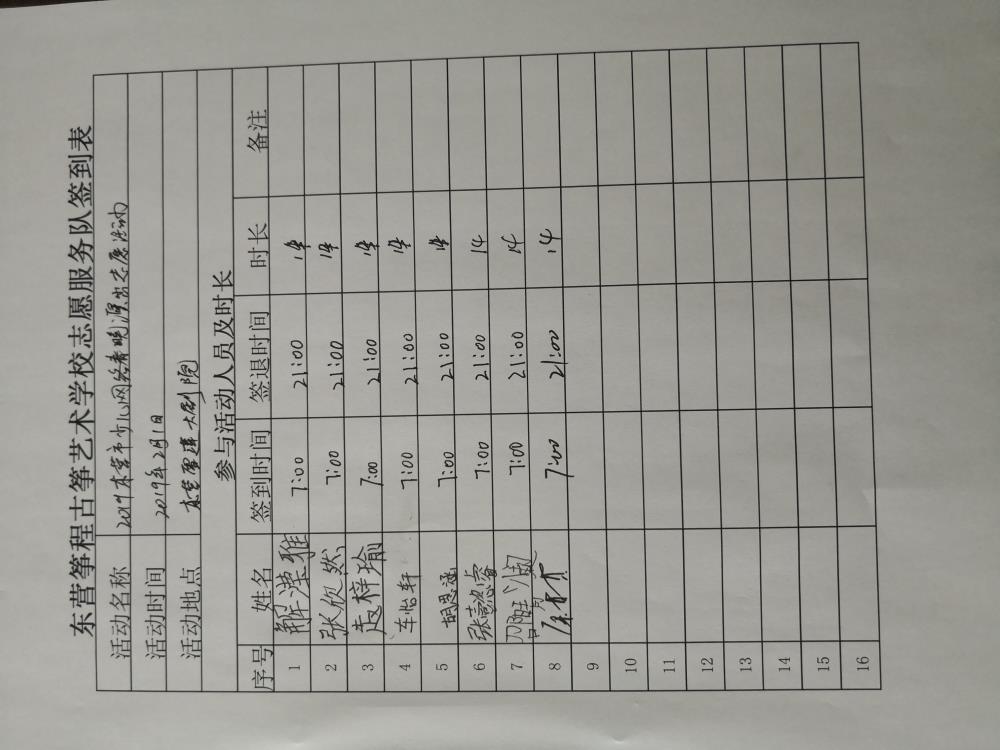 东营筝程古筝艺术学校志愿服务队签到表
活动名称 2019东营市少儿网络春晚演出志愿活动
活动时间 2019年2月1日
活动地点 东营雪莲大剧院
参与活动人员及时长
序号 姓名 签到时间 签退时间 时长 备注
1 解滢雅 7:00 21:00 14
2 张欣然 7:00 21:00 14
3 赵梓瑜 7:00 21:00 14
4 车怡轩 7:00 21:00 14
5 胡恩涵 7:00 21:00 14
6 张懿睿 7:00 21:00 14
7 7:00 21:00 14
8 7:00 21:00 14
9
10
11
12
13
14
15
16